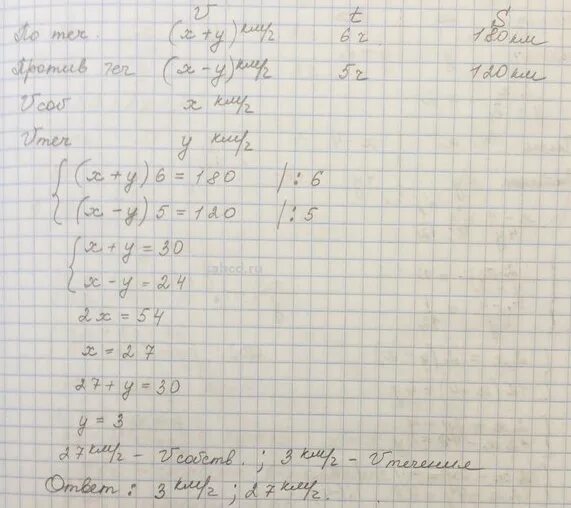 V t S
По теч. (x+y) км/ч 6 ч 180 км
Против теч (x-y) км/ч 5 ч 120 км
Vсоб x км/ч
Vтеч y км/ч
{ (x+y) 6 = 180 | : 6
(x-y) 5 = 120 | : 5
{ x+y = 30
x-y = 24
2x = 54
x = 27
27+y = 30
y = 3
27 км/ч - Vсобств. ; 3 км/ч - Vтечения
Ответ : 3 км/ч ; 27 км/ч.